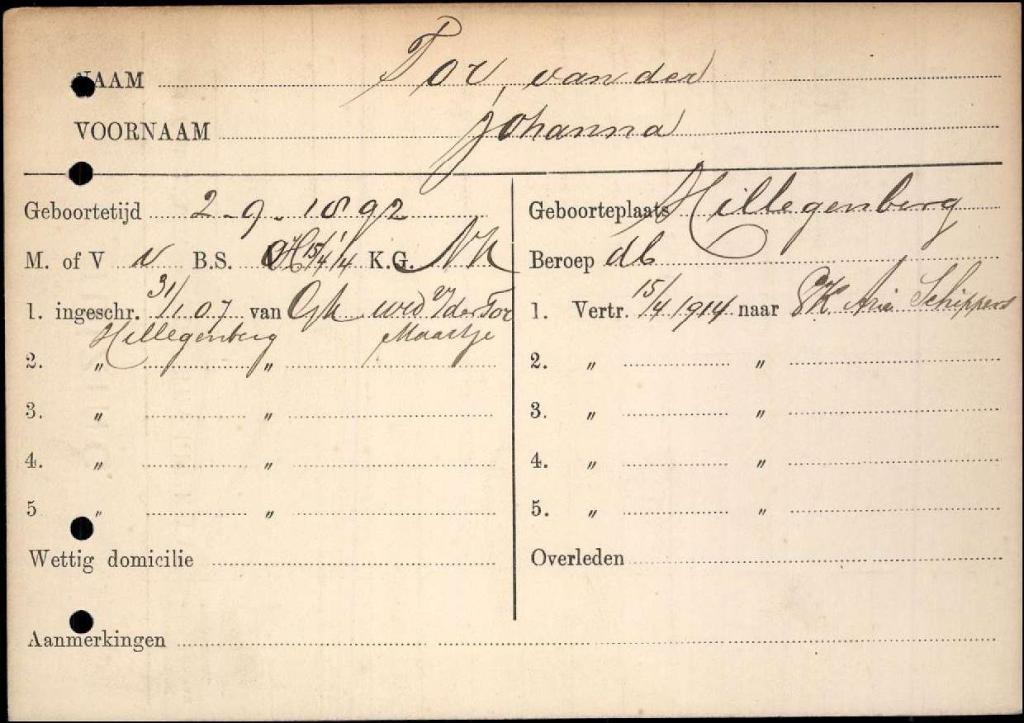 NAAM Tor, van der
VOORNAAM Johanna
Geboortetijd 2-9-1892
M. of V v B.S. H 15/4 14 K.G. NH
1. ingeschr. 31/1 07 van Gk wed v/der Tor
Hillegenberg Maartje
2. „ „
3. „ „
4. „ „
5 „ „
Wettig domicilie
Geboorteplaats Hillegenberg
Beroep db
1. Vertr. 15/4 1914 naar GK Arie Schippers
2. „ „
3. „ „
4. „ „
5. „ „
Overleden
Aanmerkingen